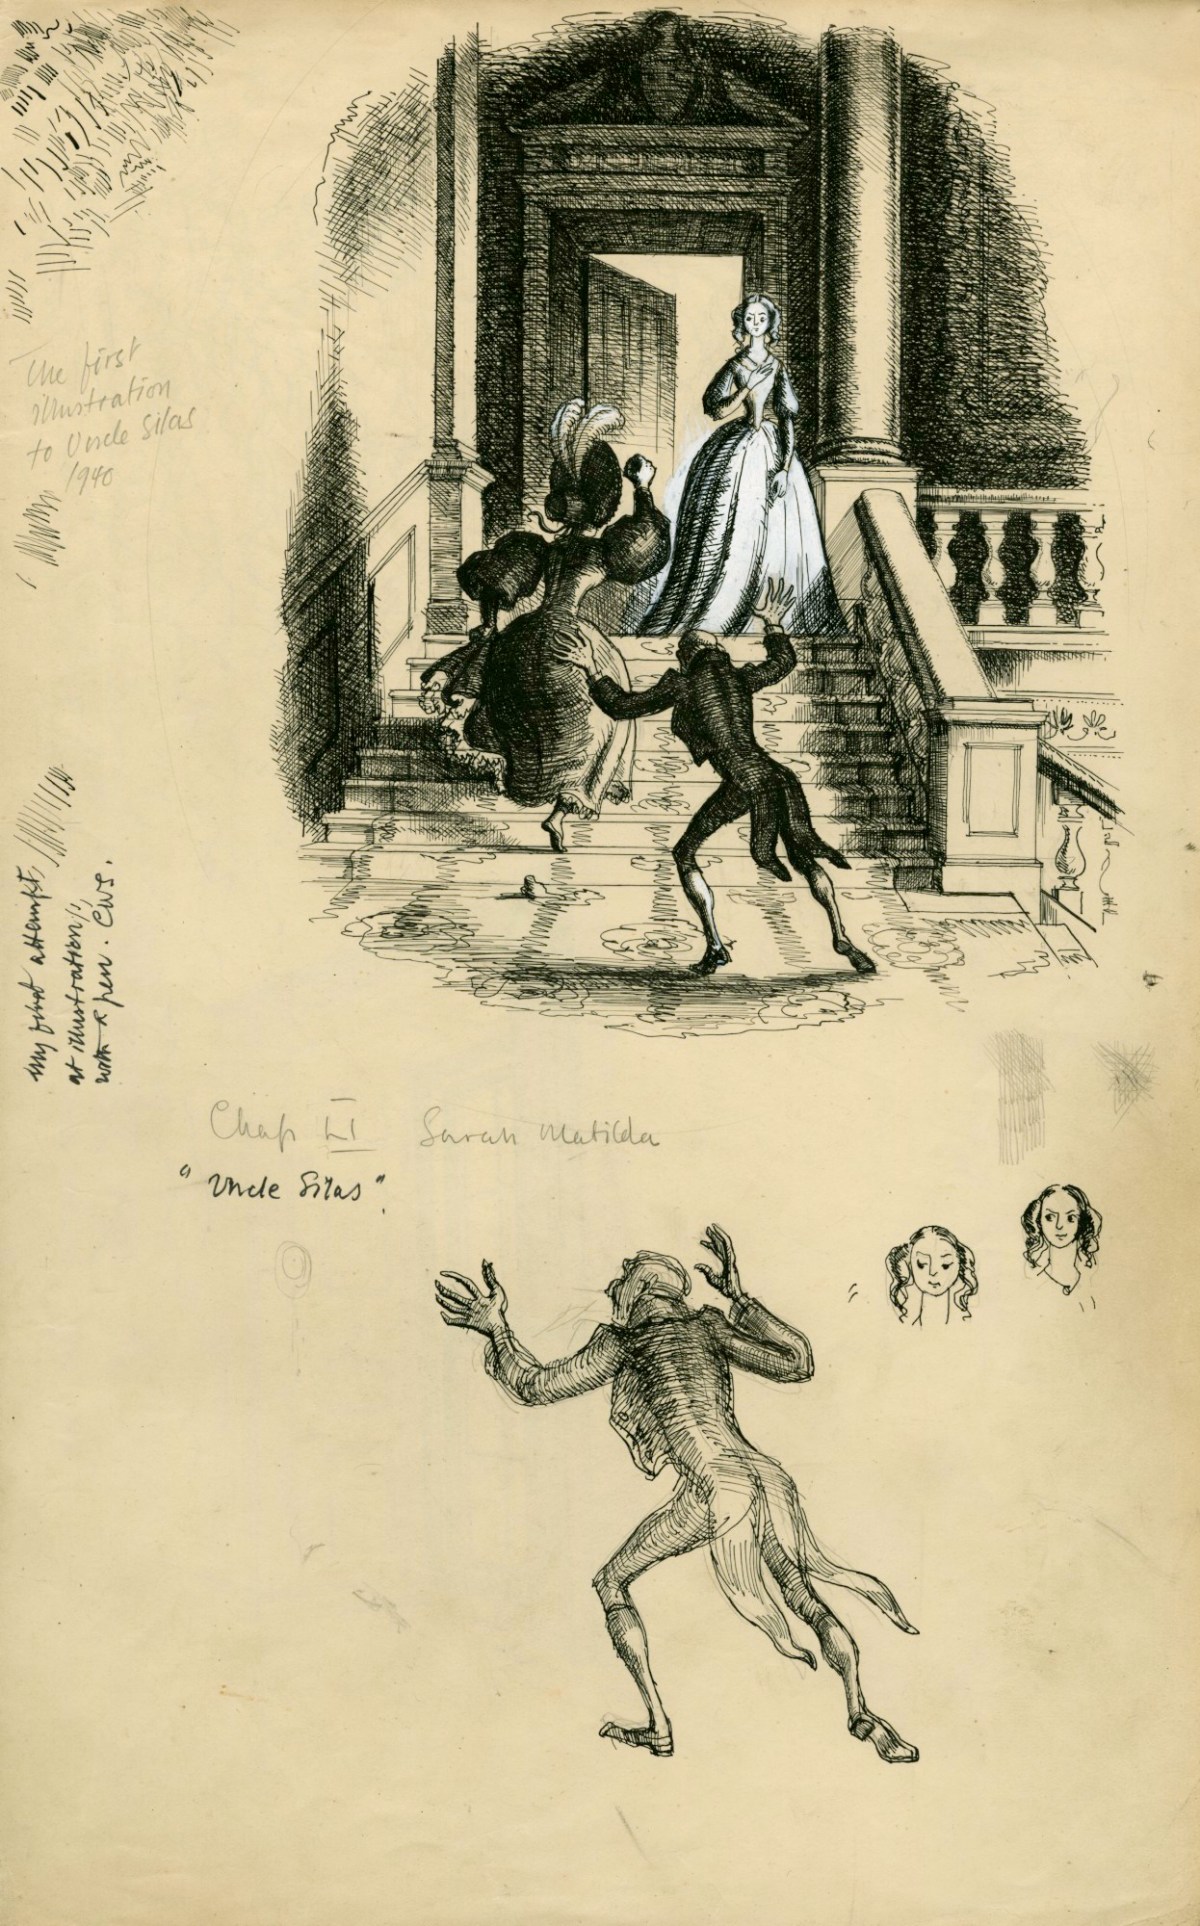 The first
illustration
to Uncle Silas
1940
my first attempt
at illustration
with a pen. CWS.
Chap LI Sarah Matilda
"Uncle Silas".